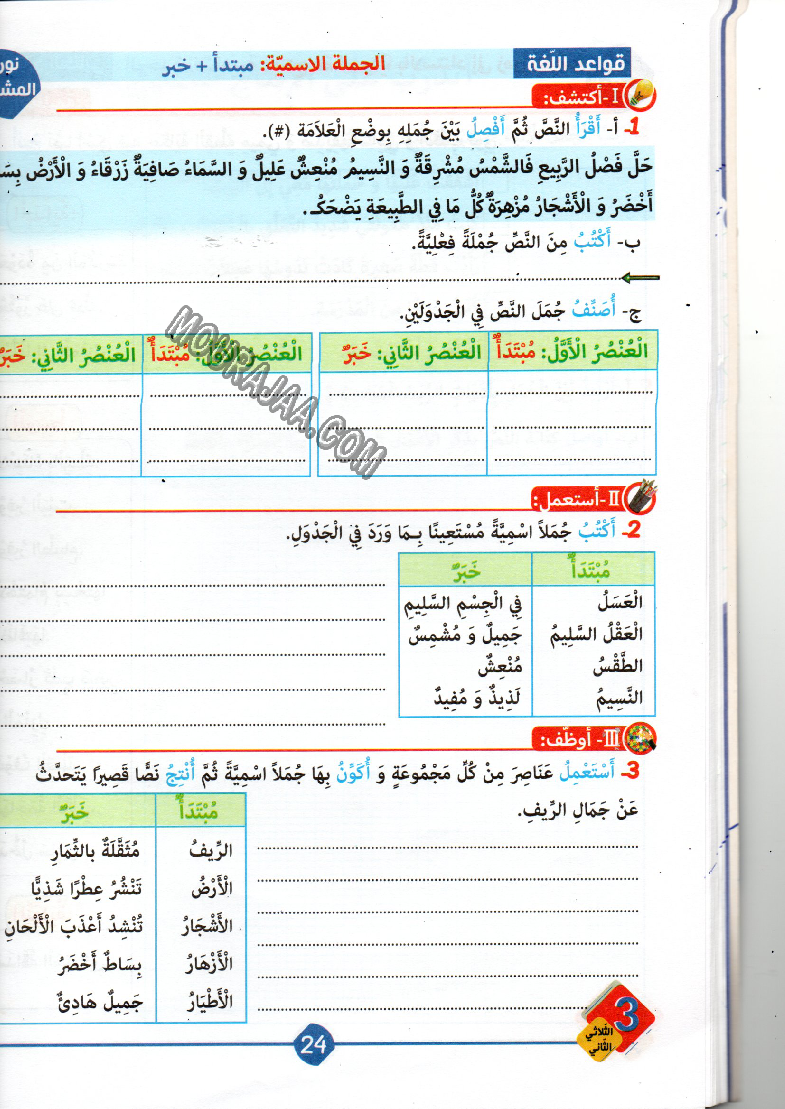 نور
المش
قواعد اللّغة
الجملة الاسميّة: مبتدأ + خبر
I- أكتشف:
1- أ- أَقْرَأُ النَّصَّ ثُمَّ أَفْصِلُ بَيْنَ جُمَلِهِ بِوضْعِ الْعَلاَمَة (#).
حَلَّ فَصْلُ الرَّبِيعِ فَالشَّمْسُ مُشْرِقَةٌ وَ النَّسِيمُ مُنْعِشٌ عَلِيلٌ وَ السَّمَاءُ صَافِيَةٌ زَرْقَاءُ وَ الْأَرْضُ بِسَا
أَخْضَرُ وَ الْأَشْجَارُ مُزْهِرَةٌ كُلُّ مَا فِي الطَّبِيعَةِ يَضْحَكُ.
ب- أَكْتُبُ مِنَ النَّصِّ جُمْلَةً فِعْلِيَّةً.
ج- أُصَنِّفُ جُمَلَ النَّصِّ فِي الْجَدْوَلَيْنِ.
الْعُنْصُرُ الْأَوَّلُ: مُبْتَدَأٌ
الْعُنْصُرُ الثَّانِي: خَبَرٌ
الْعُنْصُرُ الْأَوَّلُ: مُبْتَدَأٌ
الْعُنْصُرُ الثَّانِي: خَبَرٌ
MOURAJAA.COM
II- أستعمل:
2- أَكْتُبُ جُمَلاً اسْمِيَّةً مُسْتَعِينًا بِمَا وَرَدَ فِي الْجَدْوَلِ.
مُبْتَدَأٌ خَبَرٌ
الْعَسَلُ فِي الْجِسْمِ السَّلِيمِ
الْعَقْلُ السَّلِيمُ جَمِيلٌ وَ مُشْمِسٌ
الطَّقْسُ مُنْعِشٌ
النَّسِيمُ لَذِيذٌ وَ مُفِيدٌ
III- أوظّف:
3- أَسْتَعْمِلُ عَنَاصِرَ مِنْ كُلِّ مَجْمُوعَةٍ وَ أُكَوِّنُ بِهَا جُمَلاً اسْمِيَّةً ثُمَّ أُنْتِجُ نَصًّا قَصِيرًا يَتَحَدَّثُ
عَنْ جَمَالِ الرِّيفِ.
مُبْتَدَأٌ خَبَرٌ
الرِّيفُ مُثَقَّلَةٌ بالثِّمَارِ
الْأَرْضُ تَنْشُرُ عِطْرًا شَذِيًّا
الأَشْجَارُ تُنْشِدُ أَعْذَبَ الْأَلْحَانِ
الْأَزْهَارُ بِسَاطٌ أَخْضَرُ
الْأَطْيَارُ جَمِيلٌ هَادِئٌ
3
الثّلاثي
الثّاني
24